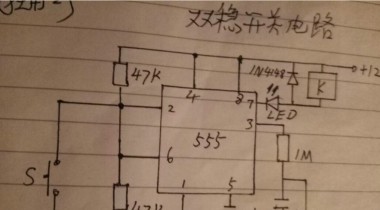 双稳开关电路
1N4148
+12
47K
4
8
K
2
7
LED
3
555
6
1M
S
1
5
47K